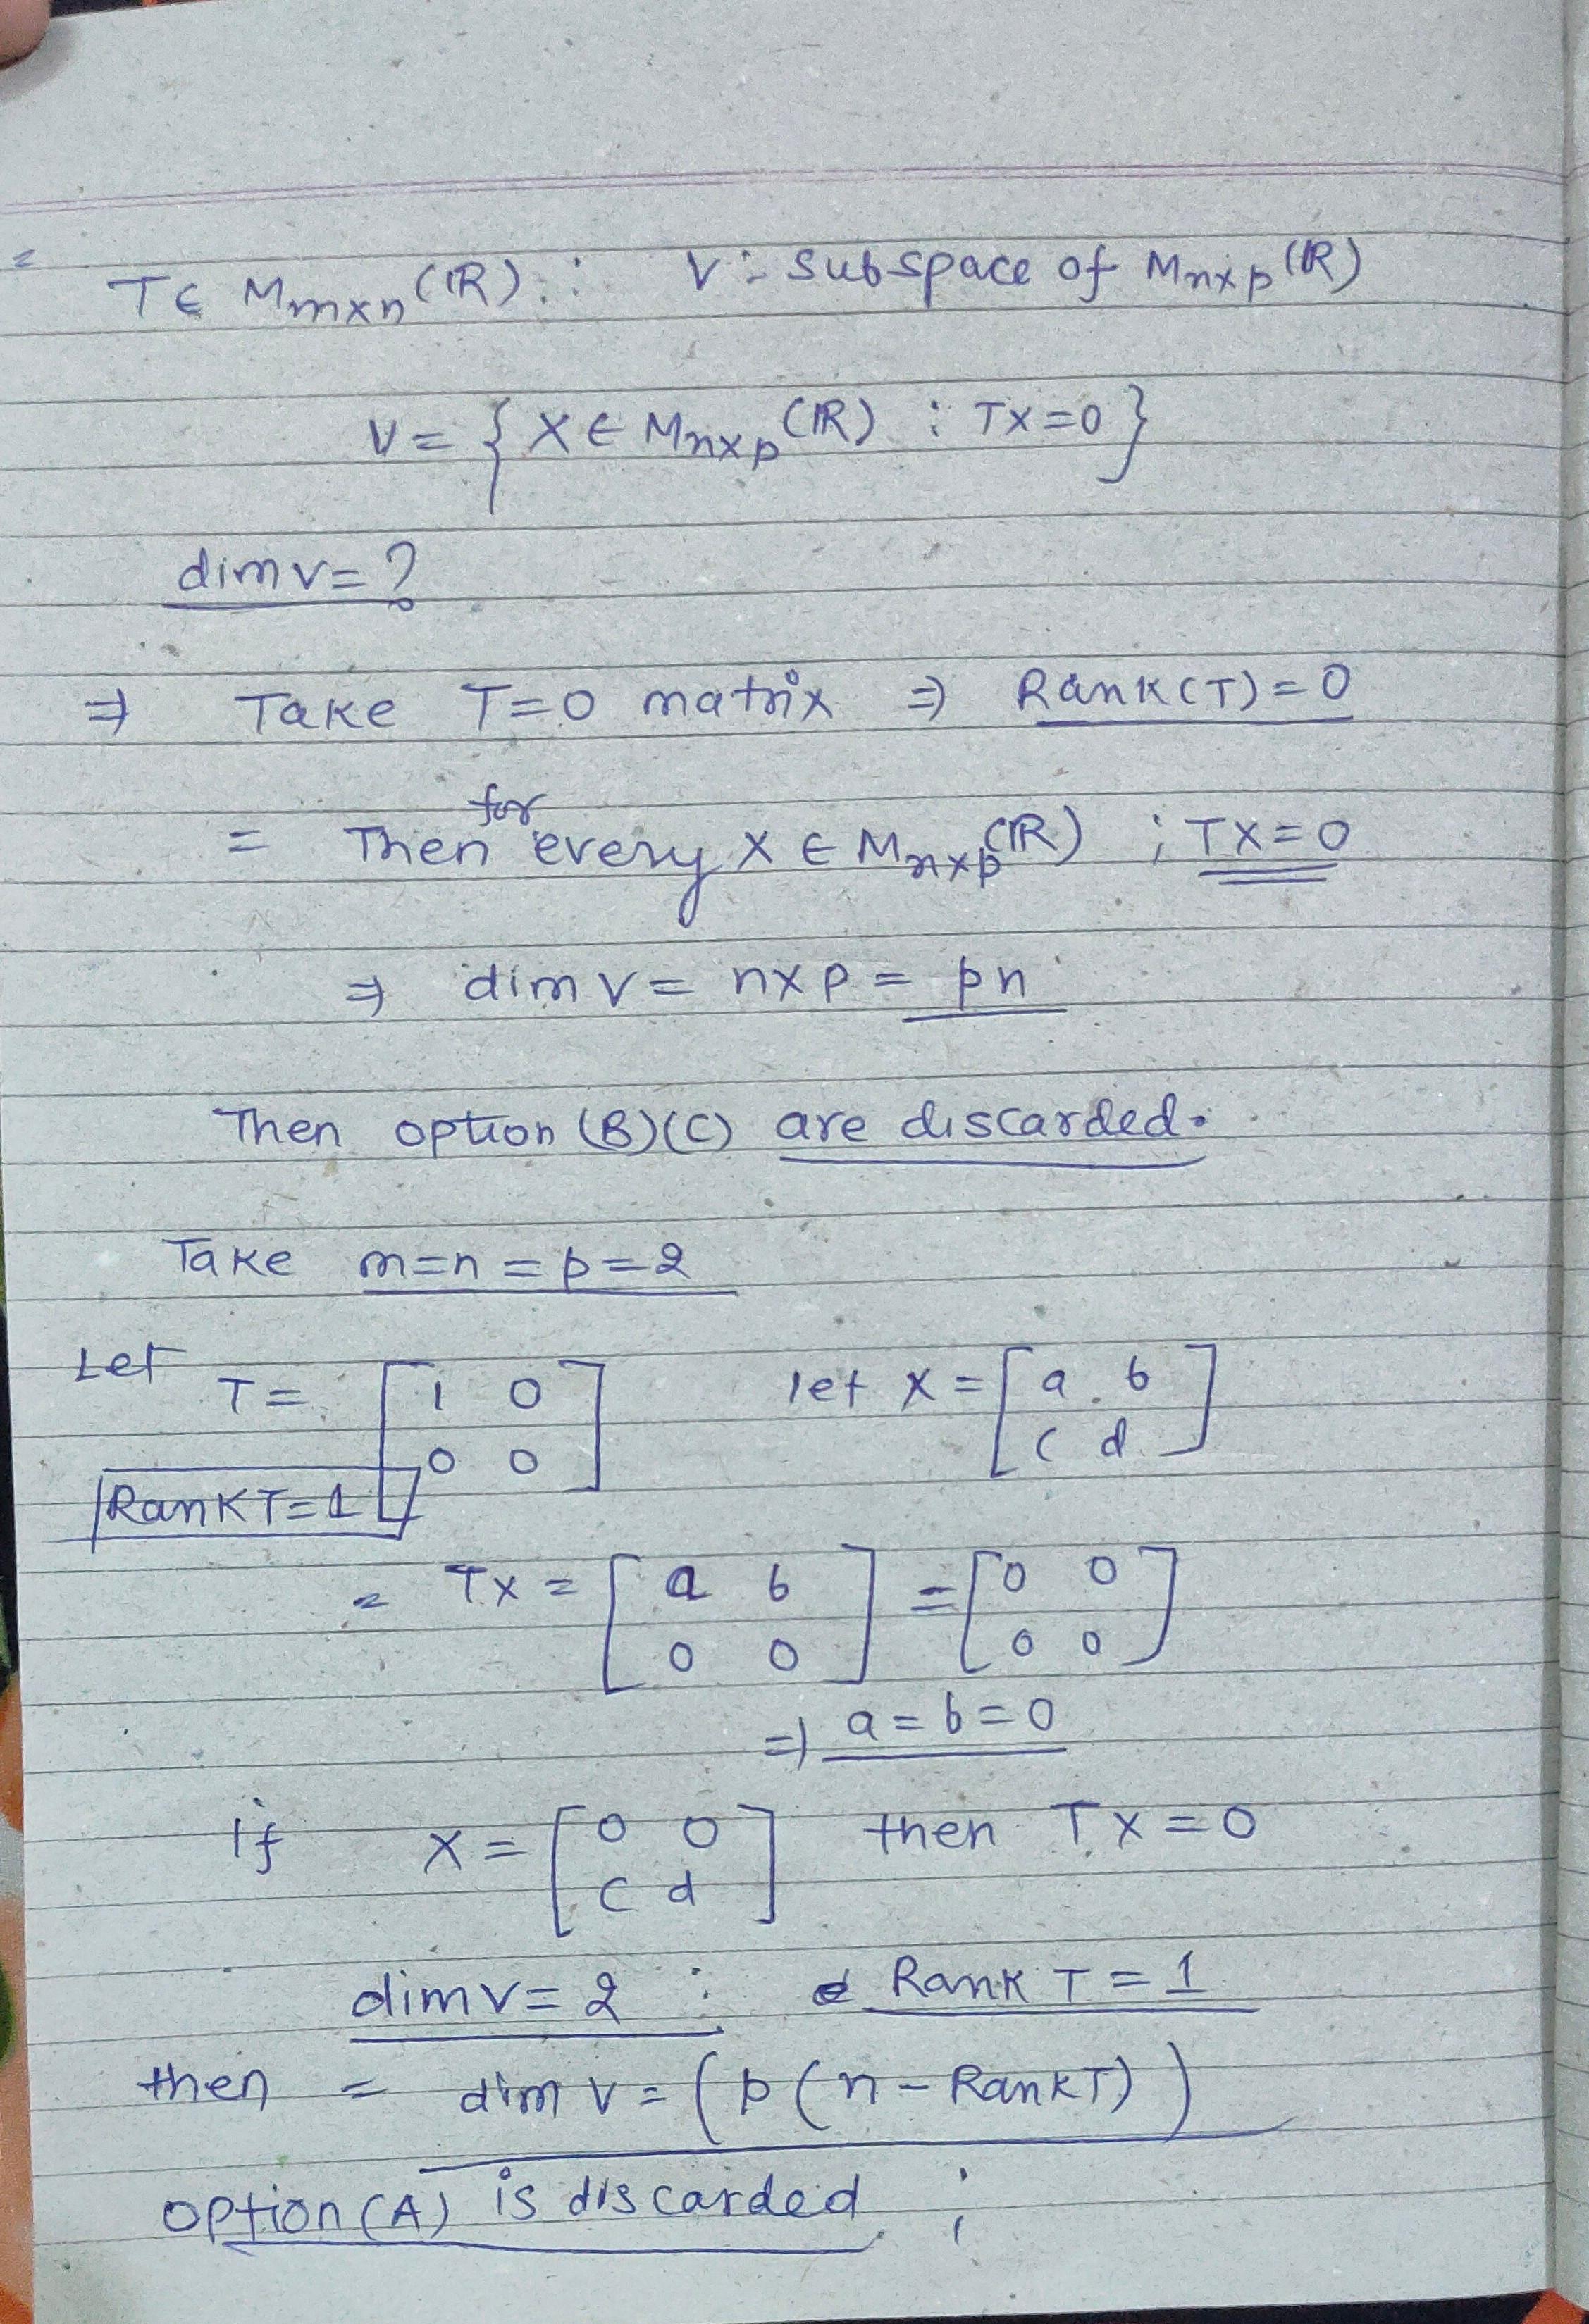 = T ∈ M_{m×n}(ℝ) : V :- subspace of M_{n×p}(ℝ)
V = { X ∈ M_{n×p}(ℝ) : TX=0 }
dim V = ?
⇒ Take T=0 matrix ⇒ Rank(T)=0
= Then for every X ∈ M_{n×p}(ℝ) ; TX=0
⇒ dim V = n×p = pn
Then option (B)(C) are discarded.
Take m=n=p=2
Let T = [1 0; 0 0] let X = [a b; c d]
Rank T=1
= TX = [a b; 0 0] = [0 0; 0 0]
⇒ a=b=0
if X = [0 0; c d] then TX=0
dim V=2 : Rank T=1
then = dim V = (p(n-Rank T))
option (A) is discarded ;